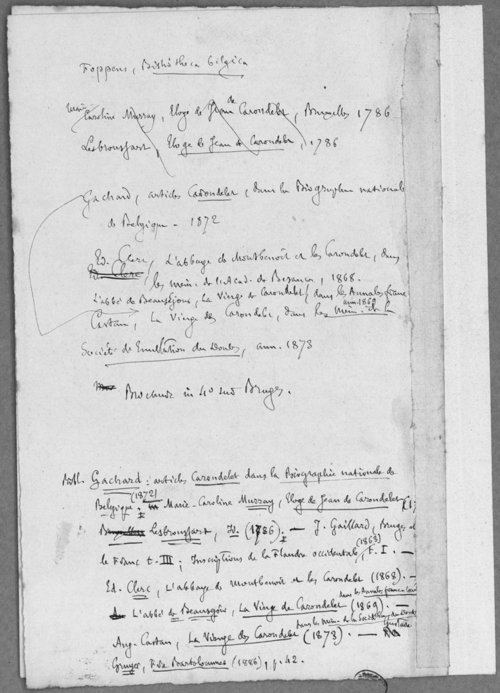 Foppens, Bibliotheca belgica
Caroline Murray, Eloge de Jean de Carondelet, Bruxelles 1786
Lesbroussart, Eloge de Jean de Carondelet, 1786
Gachard, articles Carondelet, dans la Biographie nationale
de Belgique - 1872
Ed. Clerc, L'abbaye de Montbenoit et les Carondelet, dans
les mém. de l'Acad. de Besançon, 1868.
L'abbé de Beauséjour, La Vierge de Carondelet (dans les Annales franc.
ann. 1869
Castan, La Vierge des Carondelet, dans les mém. de la
Société de Emulation du Doubs, ann. 1873
Brochure in 4o sur Bruges.
Bibl. Gachard : articles Carondelet dans la Biographie nationale de
Belgique (1872) ; Marie-Caroline Murray, Eloge de Jean de Carondelet
Lesbroussart, Id. (1786). — J. Gaillard, Bruges et
le Franc t. III ; Inscriptions de la Flandre occidentale, T. I. —
(1863)
Ed. Clerc, L'abbaye de Montbenoit et les Carondelet (1868). —
L'abbé de Beauséjour, La Vierge de Carondelet (1869). —
Aug. Castan, La Vierge des Carondelet (1873). —
Gruyer, Fra Bartolommeo (1886), p. 42.